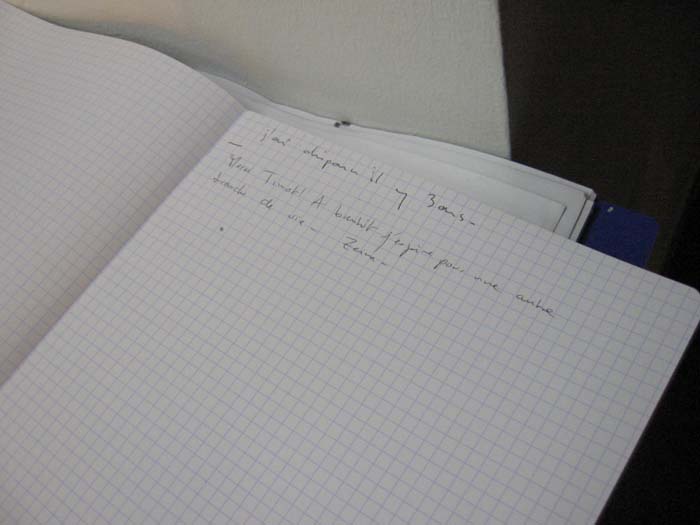 j'ai disparu il y 3 ans -
- Merci Timot! A bientôt j'espère pour une autre
tranche de vie -